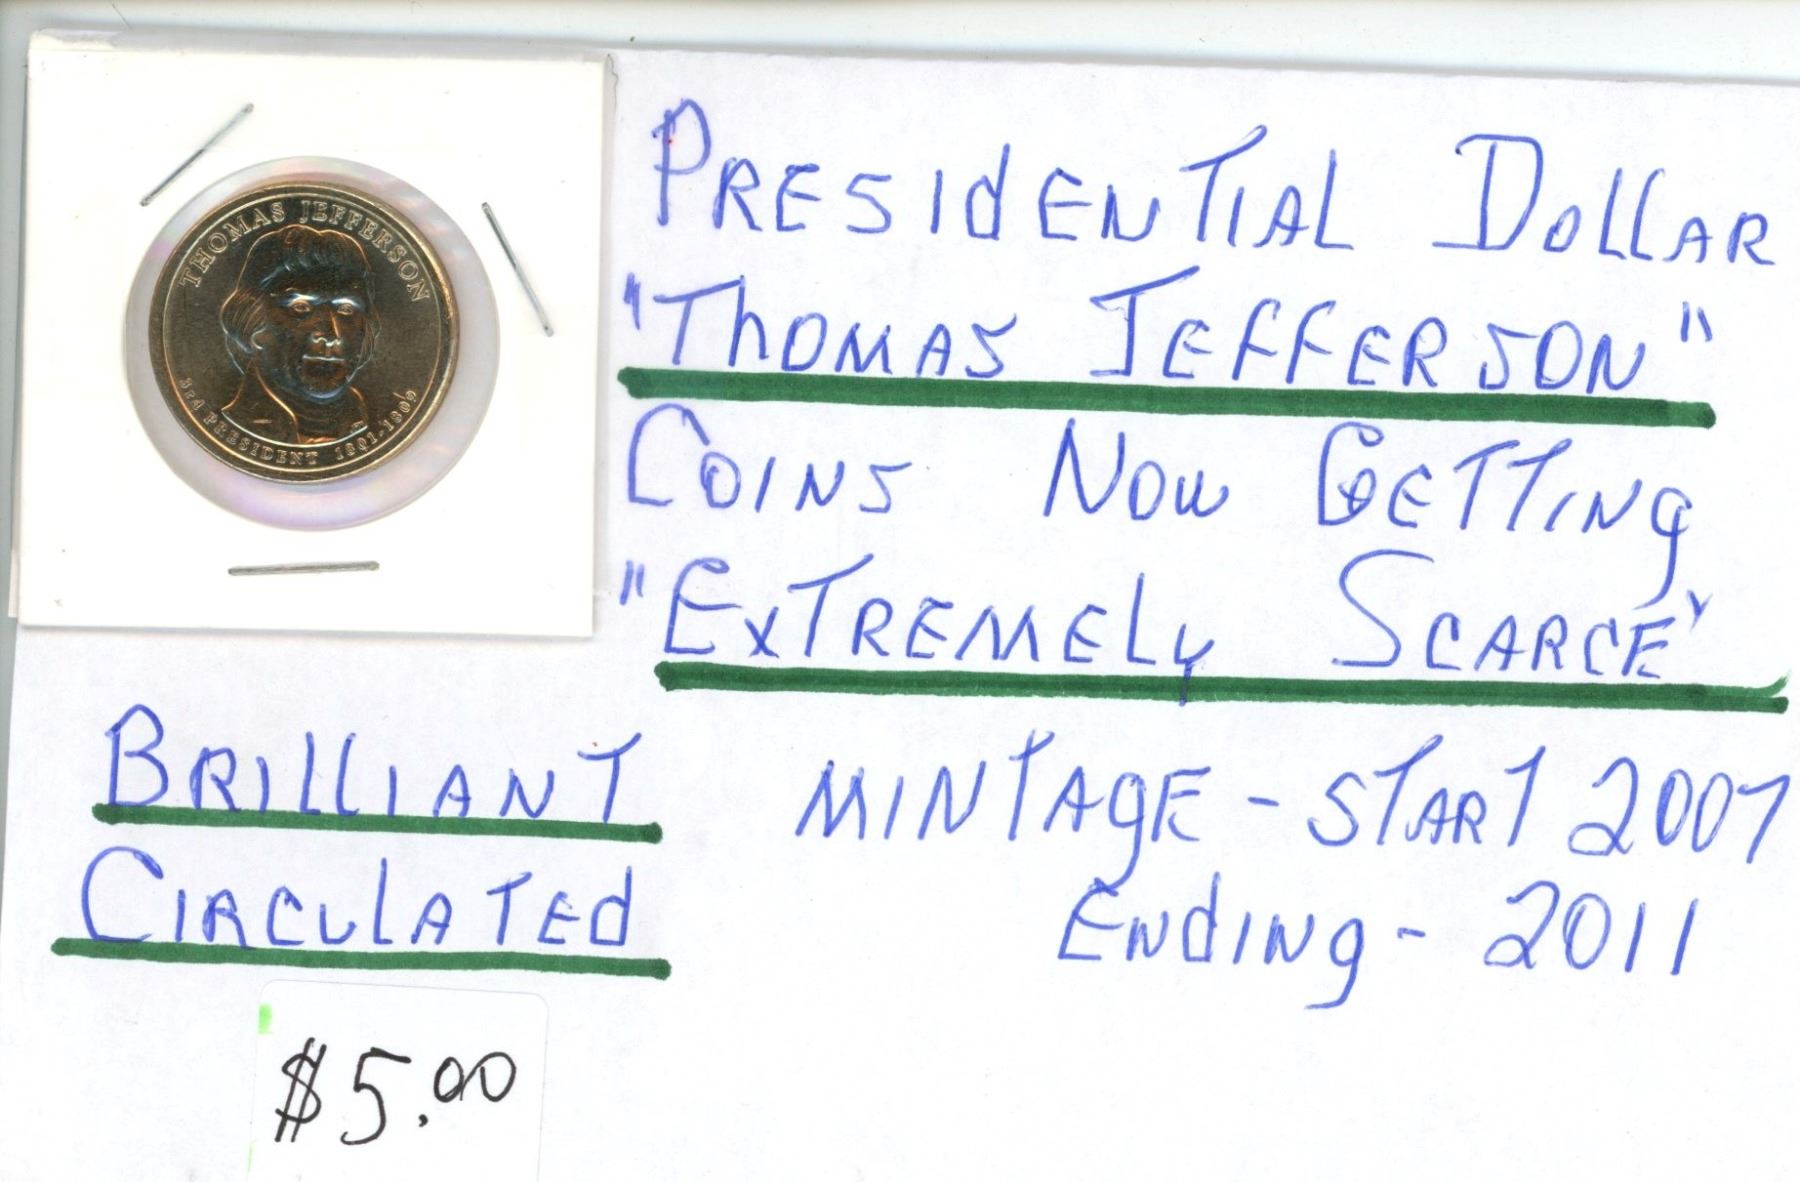 THOMAS JEFFERSON
3rd PRESIDENT 1801-1809
PRESIdENTIAL DollAR
"ThOMAS JEFFERSON"
COINS NOW GETTINg
"ExTREMELy SCARCE"
BRIllIANT
CIRCulATEd
MINTAgE - START 2007
ENdINg - 2011
$5.00